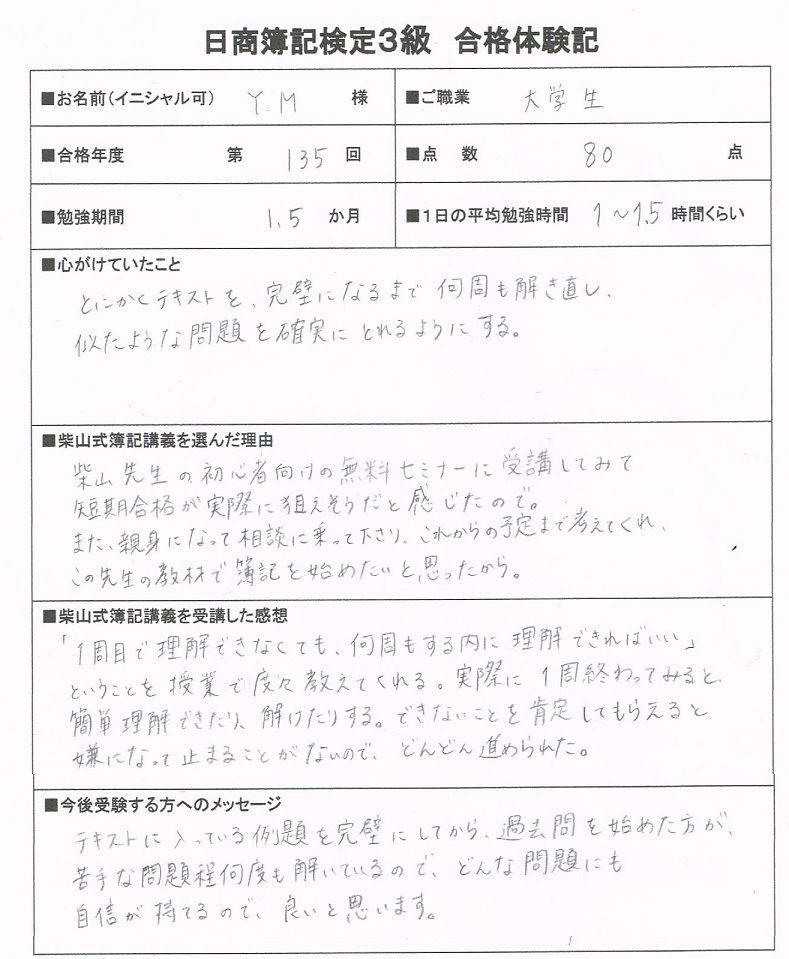 日商簿記検定3級 合格体験記
■お名前(イニシャル可) Y.M 様 ■ご職業 大学生
■合格年度 第 135 回 ■点数 80 点
■勉強期間 1.5 か月 ■1日の平均勉強時間 1～1.5 時間くらい
■心がけていたこと
とにかくテキストを、完璧になるまで何周も解き直し、
似たような問題を確実にとれるようにする。
■柴山式簿記講義を選んだ理由
柴山先生の初心者向けの無料セミナーに受講してみて
短期合格が実際に狙えそうだと感じたので。
また、親身になって相談に乗って下さり、これからの予定まで考えてくれ、
この先生の教材で簿記を始めたいと思ったから。
■柴山式簿記講義を受講した感想
「1周目で理解できなくても、何周もする内に理解できればいい」
ということを授業で度々教えてくれる。実際に1周終わってみると、
簡単理解できたり、解けたりする。できないことを肯定してもらえると
嫌になって止まることがないので、どんどん進められた。
■今後受験する方へのメッセージ
テキストに入っている例題を完璧にしてから、過去問を始めた方が、
苦手な問題程何度も解いているので、どんな問題にも
自信が持てるので、良いと思います。